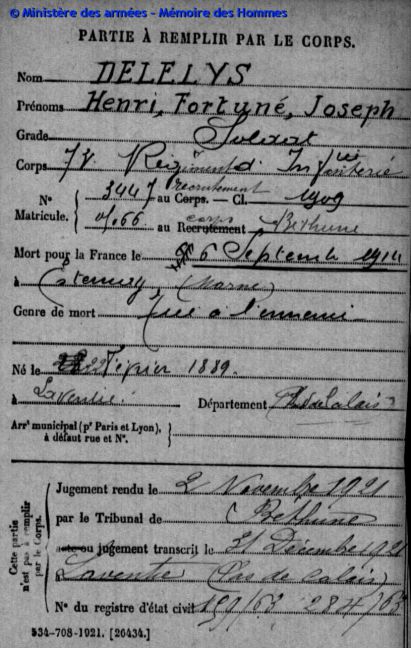 © Ministère des armées - Mémoire des Hommes
PARTIE À REMPLIR PAR LE CORPS.
Nom DELELYS
Prénoms Henri, Fortuné, Joseph
Grade Soldat
Corps 73e Régiment d'Infanterie
N° Matricule. 3447 au Corps. — Cl. 1909
recrutement
au Recrutement Béthune
corps
Mort pour la France le 6 Septembre 1914
à (Marne)
Genre de mort tué à l'ennemi
Né le 22 février 1889.
à Laventie Département Pas de Calais
Arrt municipal (pr Paris et Lyon), à défaut rue et N°.
Cette partie n'est pas à remplir par le Corps.
Jugement rendu le 2 Novembre 1921
par le Tribunal de Béthune
acte ou jugement transcrit le 31 Décembre 1921
à Laventie (Pas de Calais)
N° du registre d'état civil
534-708-1921. [26434.]